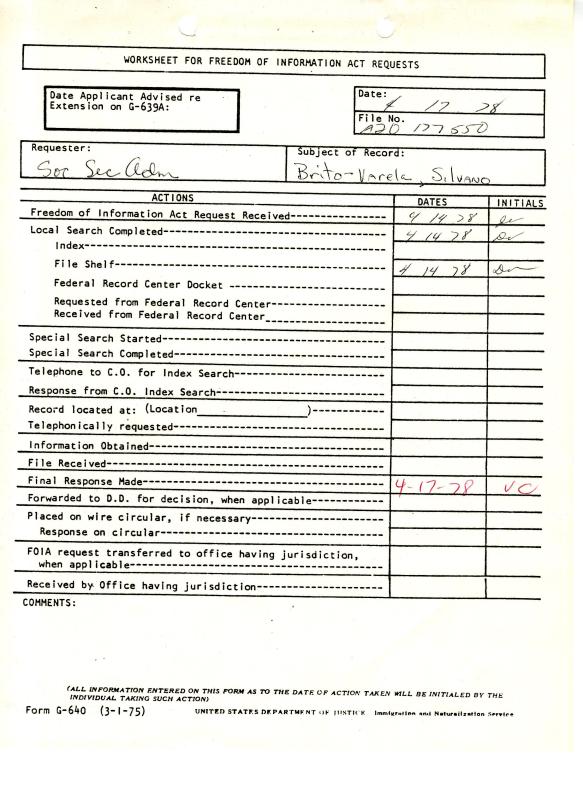 WORKSHEET FOR FREEDOM OF INFORMATION ACT REQUESTS
Date Applicant Advised re
Extension on G-639A:
Date:
4 17 78
File No.
A20 177650
Requester:
Soc Sec Adm
Subject of Record:
Brito-Varela, Silvano
ACTIONS DATES INITIALS
Freedom of Information Act Request Received---------------- 4 14 78
Local Search Completed------------------------------------- 4 14 78
Index-------------------------------------------------
File Shelf-------------------------------------------- 4 14 78
Federal Record Center Docket --------------------------
Requested from Federal Record Center-------------------
Received from Federal Record Center____________________
Special Search Started-------------------------------------
Special Search Completed-----------------------------------
Telephone to C.O. for Index Search-------------------------
Response from C.O. Index Search----------------------------
Record located at: (Location________________)------------
Telephonically requested-----------------------------------
Information Obtained---------------------------------------
File Received----------------------------------------------
Final Response Made---------------------------------------- 4-17-78 VC
Forwarded to D.D. for decision, when applicable------------
Placed on wire circular, if necessary----------------------
Response on circular-------------------------------------
FOIA request transferred to office having jurisdiction,
when applicable------------------------------------------
Received by Office having jurisdiction---------------------
COMMENTS:
(ALL INFORMATION ENTERED ON THIS FORM AS TO THE DATE OF ACTION TAKEN WILL BE INITIALED BY THE
INDIVIDUAL TAKING SUCH ACTION)
Form G-640 (3-1-75) UNITED STATES DEPARTMENT OF JUSTICE Immigration and Naturalization Service